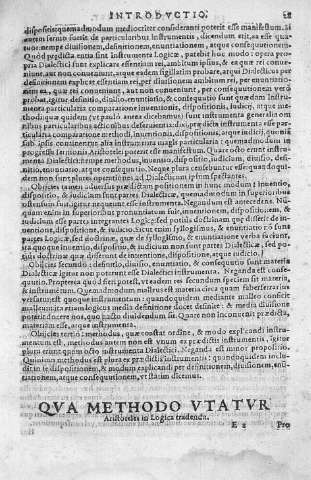 INTRODVCTIO. 
dispositis: quemadmodum mediocriter consideranti poterit esse manifestum. Si
autem sermo fuerit de particularibus instrumentis, dicendum erit, ea esse qua-
tuor nempe diuisionem, definitionem, enuntiationem, atque consequutionem.
Quòd prædicta enim sint instrumenta Logicæ, patebit hoc modo: opera pro-
pria Dialectici sunt explicare essentiam rei, ambitum ipsius, & ea quæ rei conue-
niunt, aut non conueniunt, atque eadem sigillatim probare, atqui Dialecticus per
definitionem explicat essentiam rei, per diuisionem autem ambitum rei, per enuntiatio
nem ea, quæ rei conueniunt, aut non conueniunt, per consequutionem verò
probat, igitur definitio, diuisio, enuntiatio, & consequutio sunt quædam instru-
menta particularia comparatione inuentionis, dispositionis, iudicij, atque me-
thodi: quæ quidem (vt paulò antea dicebamus) sunt instrumenta generalia omnibus
particularia comparata methodo, inuentionis, dispositionis, atque iudicij, quæ
sub ipsis continentur alia instrumenta magis particularia: quemadmodum in
progressu sermonis Aristotelei poterit esse manifestum. Quare octo erunt instru-
menta Dialectici: nempe methodus, inuentio, dispositio, iudicium, diuisio, defi-
nitio, enuntiatio, atque consequutio. Neque plura censebuntur: quandoqui-
dem non sunt plures operationes ad Dialecticum ipsum spectantes.
Obijcies tamen aduersus prædictam positionem in hunc modum: inuentio,
dispositio, & iudicium sunt partes Dialecticæ, quemadmodum in superioribus
ostensum fuit, ergo non sunt instrumenta. Negandum est antecedens. Nun-
quam enim in superioribus pronuntiatum fuit, inuentionem, dispositionem, &
iudicium esse partes integrantes Logicæ: sed potius doctrinam quæ disserit de in-
uentione, dispositione, & iudicio. Sicut enim syllogismus, & enuntiatio non sunt
partes Logicæ, sed doctrinæ, quæ de syllogismo, & enuntiatione verba faciunt,
ita quoque inuentio, dispositio, & iudicium non sunt partes Dialecticæ, sed po-
tius doctrinæ quæ disserunt de inuentione, dispositione, atque iudicio.
Obijcies secundò: definitio, diuisio, enuntiatio, & consequutio sunt materia
Dialecticæ igitur non poterunt esse Dialectici instrumenta. Neganda est conse-
quutio. Propterea quòd fieri potest, vt eadem res secundum speciem sit materia,
& instrumentum. Quemadmodum malleus est materia circa quam faber ferrarius
versatur: est quoque instrumentum: quandoquidem mediante malleo conficit
malleum: ita etiam logicus media definitione docet definire: & media diuisione
poterit dicere quot, quo pacto diuidendum sit. Quare non inconuenit prædicta,
materiam esse, atque instrumenta.
Obijcies tertiò: methodus, quæ constat ordine, & modo explicandi instru-
mentum est, methodus autem non est vnum ex prædictis instrumentis, igitur
plura erunt quàm octo instrumenta Dialectici. Neganda est minor propositio.
Quinimo methodus est plura ex prædictis instrumentis: quandoquidem inclu-
dit in se dispositionem, & modum explicandi per definitionem, diuisionem, enu-
tiationem, atque consequutionem, vt statim dicemus.
QVA METHODO VTATVR
Aristoteles in Logica tradenda.
E 2 Pro